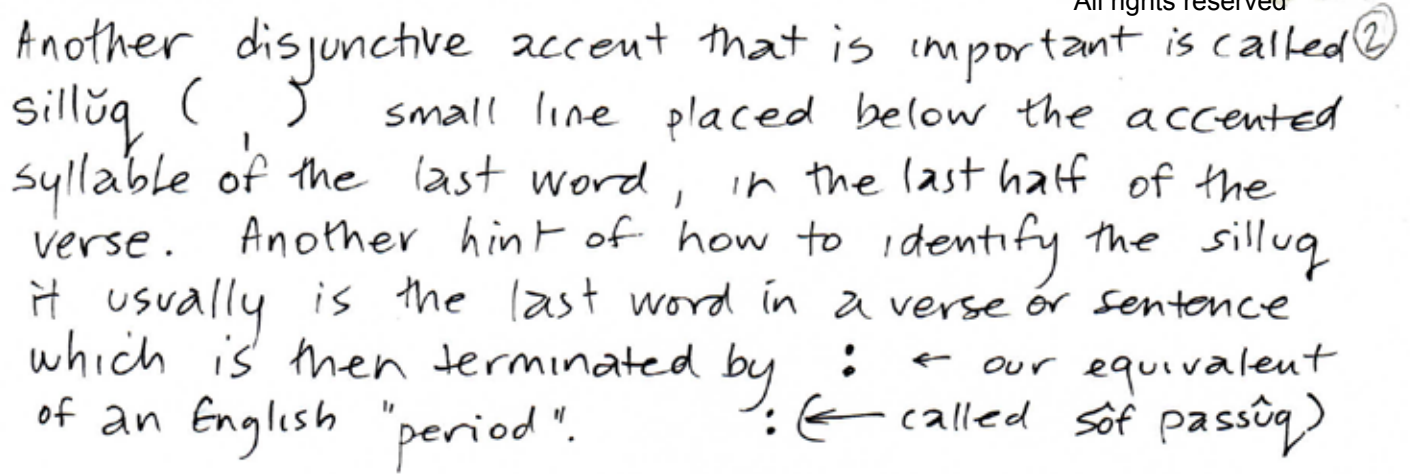 All rights reserved
Another disjunctive accent that is important is called ②
sillŭq ( ˌ ) small line placed below the accented
syllable of the last word, in the last half of the
verse. Another hint of how to identify the silluq
it usually is the last word in a verse or sentence
which is then terminated by : ← our equivalent
of an English "period". : (← called sôf passûq)